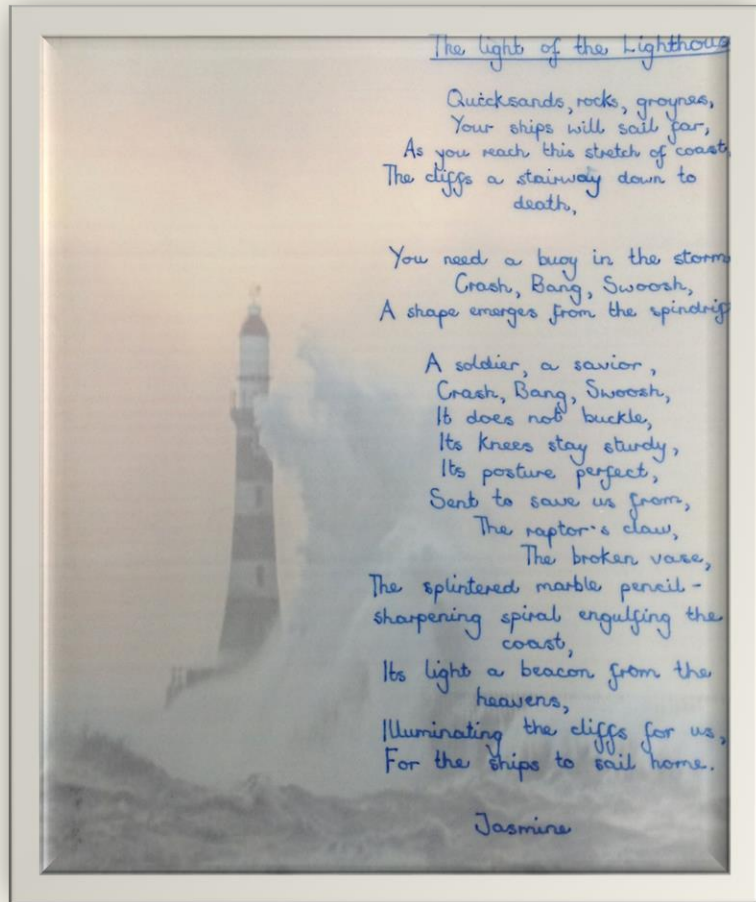 The light of the Lighthous
Quicksands, rocks, groynes,
Your ships will sail far,
As you reach this stretch of coast,
The cliffs a stairway down to
death,
You need a buoy in the storm
Crash, Bang, Swoosh,
A shape emerges from the spindrif
A soldier, a savior,
Crash, Bang, Swoosh,
It does not buckle,
Its knees stay sturdy,
Its posture perfect,
Sent to save us from,
The raptor's claw,
The broken vase,
The splintered marble pencil-
sharpening spiral engulfing the
coast,
Its light a beacon from the
heavens,
Illuminating the cliffs for us,
For the ships to sail home.
Jasmine